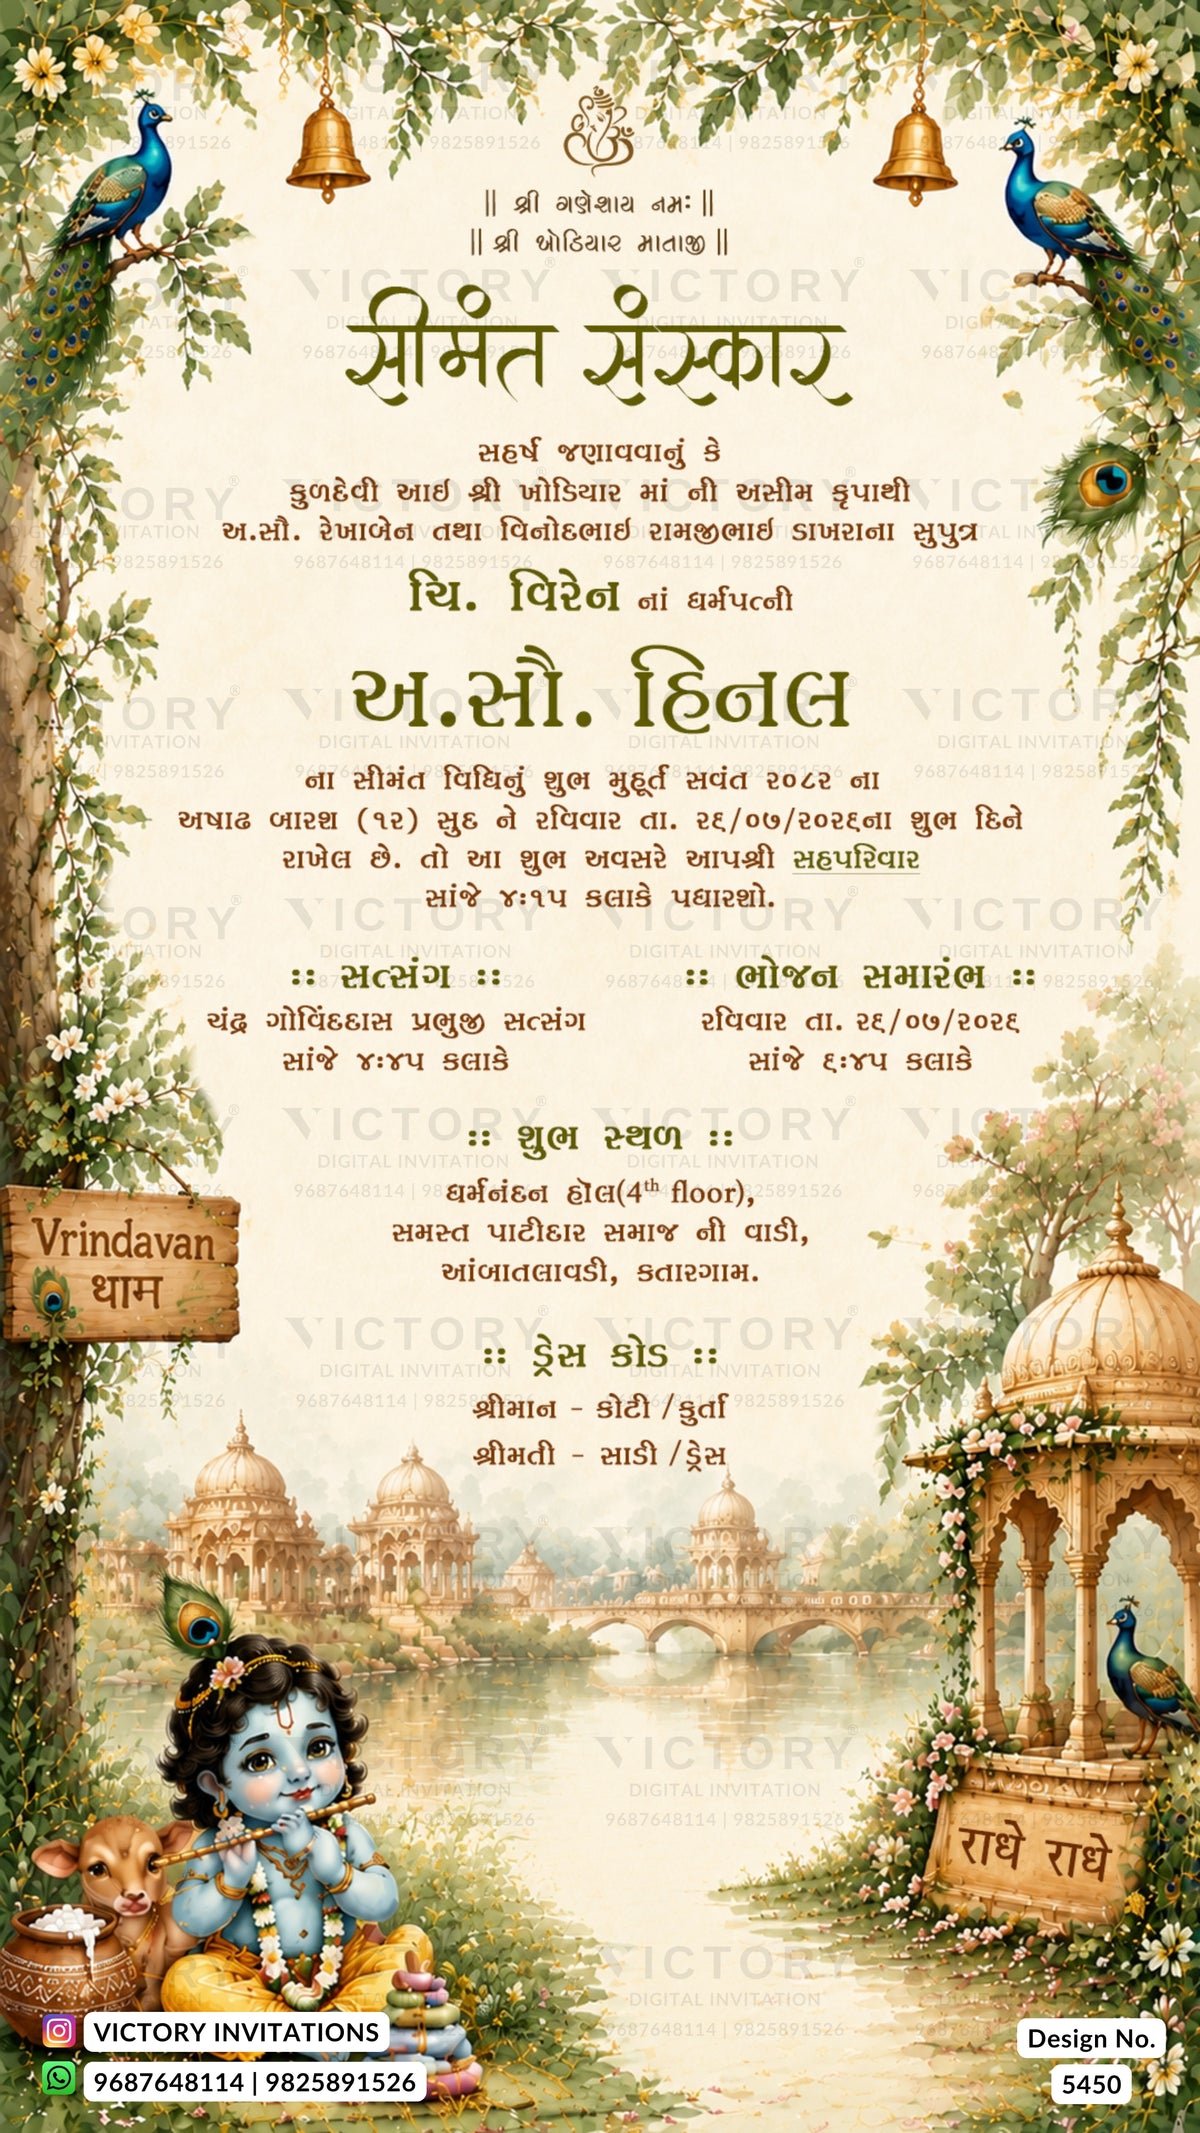 || શ્રી ગણેશાય નમઃ ||
|| શ્રી ખોડિયાર માતાજી ||
सीमंत संस्कार
સહર્ષ જણાવવાનું કે
કુળદેવી આઇ શ્રી ખોડિયાર માં ની અસીમ કૃપાથી
અ.સૌ. રેખાબેન તથા વિનોદભાઇ રામજીભાઇ ડાખરાના સુપુત્ર
ચિ. વિરેન નાં ધર્મપત્ની
અ.સૌ. હિનલ
ના સીમંત વિધિનું શુભ મુહૂર્ત સવંત ૨૦૮૨ ના
અષાઢ બારશ (૧૨) સુદ ને રવિવાર તા. ૨૬/૦૭/૨૦૨૬ના શુભ દિને
રાખેલ છે. તો આ શુભ અવસરે આપશ્રી સહપરિવાર
સાંજે ૪:૧૫ કલાકે પધારશો.
:: સત્સંગ ::
ચંદ્ર ગોવિંદદાસ પ્રભુજી સત્સંગ
સાંજે ૪:૪૫ કલાકે
:: ભોજન સમારંભ ::
રવિવાર તા. ૨૬/૦૭/૨૦૨૬
સાંજે ૬:૪૫ કલાકે
:: શુભ સ્થળ ::
ધર્મનંદન હૉલ(4th floor),
સમસ્ત પાટીદાર સમાજ ની વાડી,
આંબાતલાવડી, કતારગામ.
Vrindavan
धाम
:: ડ્રેસ કોડ ::
શ્રીમાન - કોટી /કુર્તા
શ્રીમતી - સાડી /ડ્રેસ
राधे राधे
VICTORY INVITATIONS
9687648114 | 9825891526
Design No.
5450
VICTORY
DIGITAL INVITATION
9687648114 | 9825891526